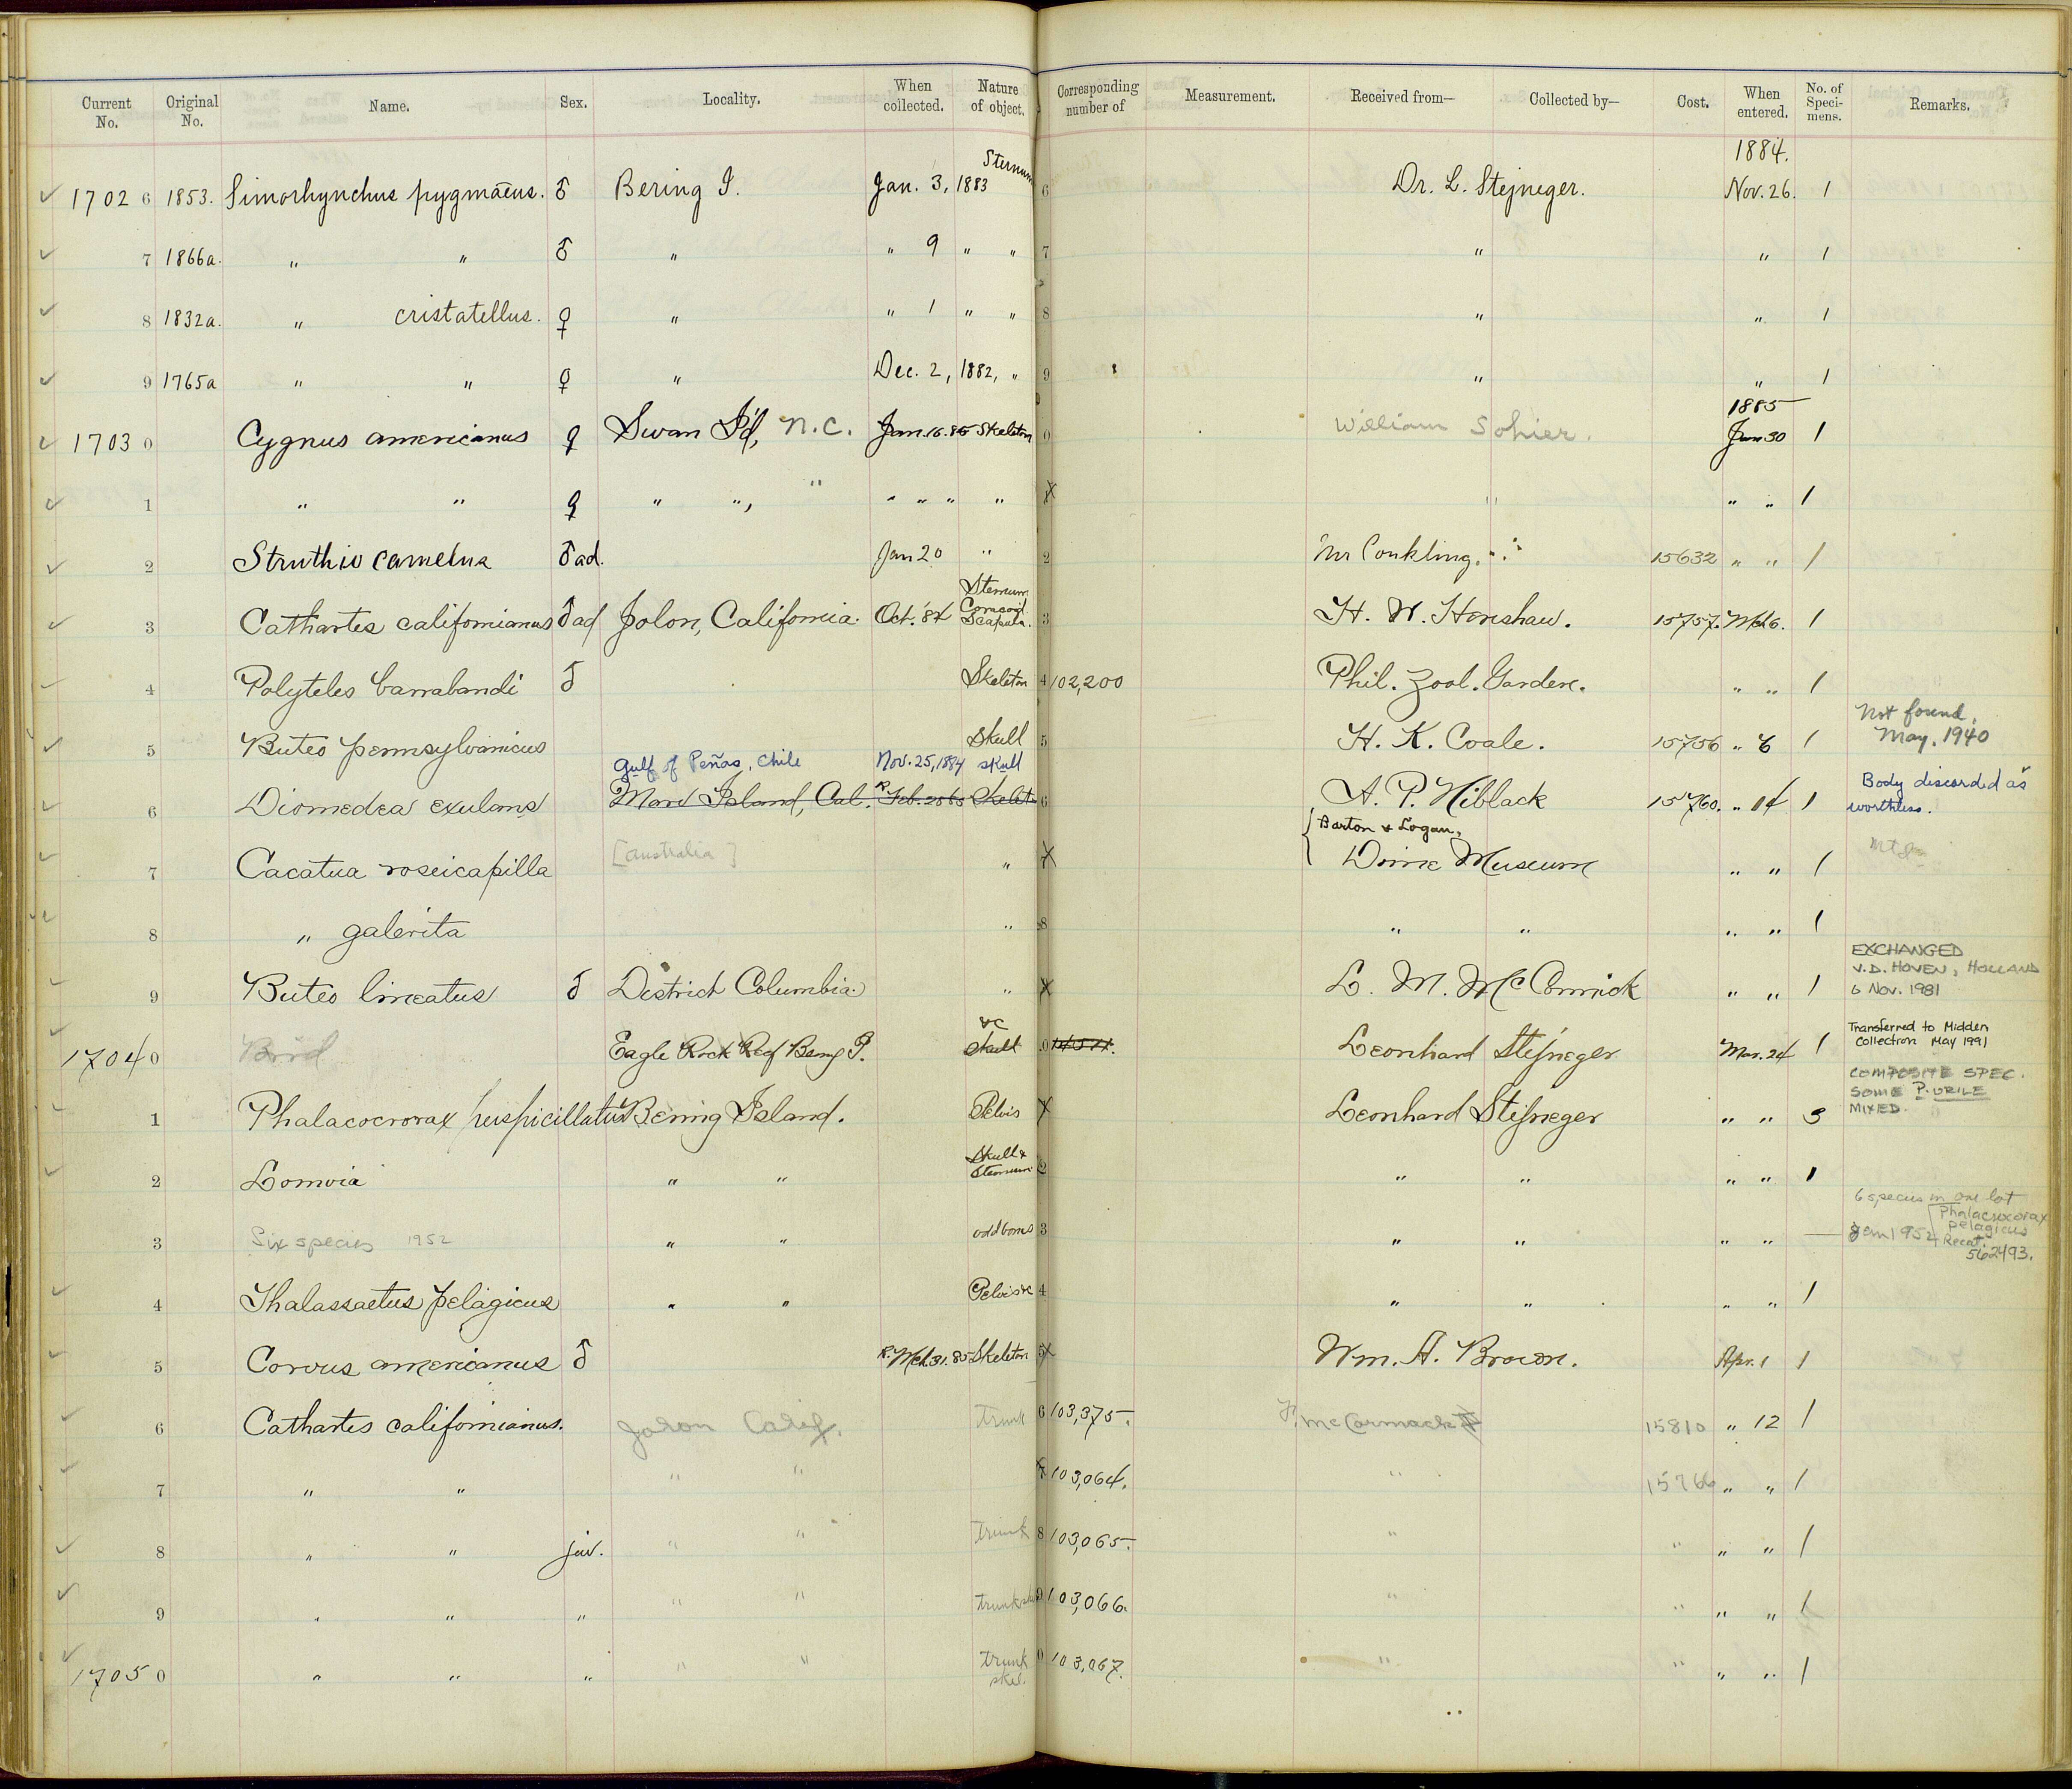 Current No. Original No. Name. Sex. Locality. When collected. Nature of object. Corresponding number of Measurement. Received from— Collected by— Cost. When entered. No. of Specimens. Remarks.
1884.
17026 1853. Simorhynchus pygmæus. ♂ Bering I. Jan. 3, 1883 Sternum 6 Dr. L. Stejneger. Nov. 26. 1
7 1866a. " " ♂ " " 9 " " 7 " " 1
8 1832a. " cristatellus. ♀ " " 1 " " 8 " " 1
9 1765a " " ♀ " Dec. 2, 1882, " 9 " " 1
1885
17030 Cygnus americanus ♀ Swan Is'd, N.C. Jan. 16. 85 Skeleton 0 William Sohier. Jan 30 1
1 " " ♀ " ", " " " " " " " " 1
2 Struthio camelus ♂ ad. Jan 20 " 2 Mr Conkling. 15632 " " 1
3 Cathartes californianus ♂ ad Jolon, California. Oct. '84 Sternum Coracoid Scapula. 3 H. W. Henshaw. 15757. Mch 6. 1
4 Polyteles barrabandi ♂ Skeleton 4 102,200 Phil. Zool. Garden. " " 1
5 Buteo pennsylvanicus Skull 5 H. K. Coale. 15756 " 6 1 Not found, May, 1940
Gulf of Peñas, Chile Nov. 25, 1884 skull
6 Diomedea exulans Mare Island, Cal. R. Feb. 20 Skelet 6 A. P. Niblack 15760. " 14 1 Body discarded as worthless.
7 Cacatua roseicapilla [Australia] " Barton & Logan, Dime Museum " " 1
8 " galerita " 8 " " " " 1
9 Buteo lineatus ♂ District Columbia " L. M. McCormick " " 1 EXCHANGED V.D. HOVEN, HOLLAND 6 Nov. 1981
17040 Bird Eagle Rock Reef Bering I. Skull &c 0 Leonhard Stejneger Mar. 24 1 Transferred to Midden Collection May 1991
1 Phalacocrorax perspicillatus Bering Island. Pelvis Leonhard Stejneger " " 3 COMPOSITE SPEC. SOME P. URILE MIXED.
2 Lomvia " " Skull & Sternum 2 " " " " 1
3 Six species 1952 " " odd bones 3 " " " " — 6 species in one lot Jan 1952 Phalacrocorax pelagicus Recat. 562493.
4 Thalassaetus pelagicus " " Pelvis &c 4 " " " " 1
5 Corvus americanus ♂ R. Mch. 31. 85 Skeleton 5 Wm. A. Brown. Apr. 1 1
6 Cathartes californianus. Jolon Calif. trunk 6 103,375. McCormack 15810 " 12 1
7 " " " " 103,064. " 15766 " " 1
8 " " juv. " " trunk 8 103,065. " " " " 1
9 " " " " " trunk 9 103,066. " " " " 1
17050 " " " " " trunk skel. 0 103,067. " " " " 1